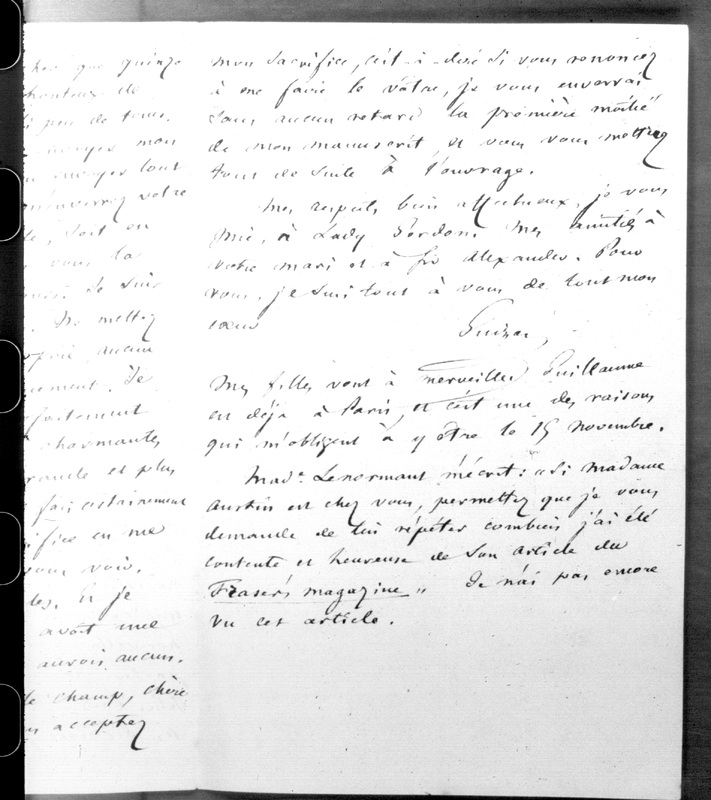 ches que quinze
honteux de
si peu de tems.
envoyer mon
envoyer tout
m'enverrez votre
soit en
vous la
Je suis
Ne mettez
aucun
Je
fortement
charmantes
grande et plus
fais certainement
sacrifice en me
vous voir.
et je
avoit une
aurois aucun.
le champ, chère
acceptez
mon sacrifice, c'est-à-dire si vous renoncez
à me faire le vôtre, je vous enverrai
sans aucun retard la première moitié
de mon manuscrit, et vous vous mettrez
tout de suite à l'ouvrage.
Mes respects bien affectueux, je vous
prie, à Lady Gordon. Mes amitiés à
votre mari et à Sir Alexander. Pour
vous, je suis tout à vous de tout mon
cœur
Guizot
Mes filles vont à merveille. Guillaume
est déjà à Paris, et c'est une des raisons
qui m'obligent à y être le 15 novembre.
Made Lenormant m'écrit : « Si madame
Austin est chez vous, permettez que je vous
demande de lui répéter combien j'ai été
contente et heureuse de son article du
Fraser's magazine » Je n'ai pas encore
vu cet article.